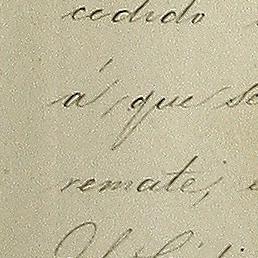 cedido
á, que se
remate;